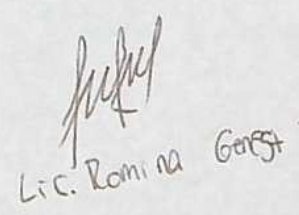 Lic. Romina Genest